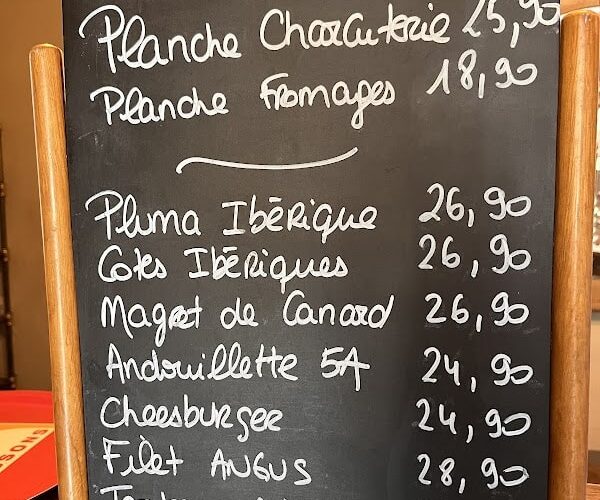 Planche Charcuterie 25,90
Planche Fromages 18,90
Pluma Ibérique 26,90
Cotes Ibériques 26,90
Magret de Canard 26,90
Andouillette 5A 24,90
Cheesburger 24,90
Filet ANGUS 28,90